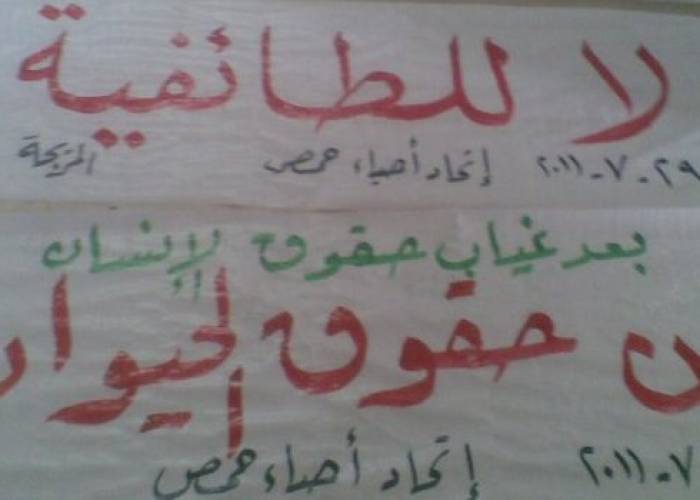 لا للطائفية
٢٩-٧-٢٠١١ إتحاد أحياء حمص المريجة
بعد غياب حقوق لإنسان
ن حقوق الحيوان
٧-٢٠١١ إتحاد أحياء حمص